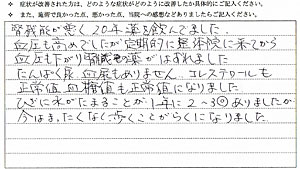 ※ 症状が改善された方は、どのような症状がどのように改善したか具体的にご記入ください。
※ また、施術で良かった点、悪かった点、当院への感想などありましたらご記入ください。
腎機能が悪く20年薬を飲んでました。
血圧も高めでしたが定期的に整体院に来てから
血圧も下がり腎臓の薬がはずれました
たんぱく尿、血尿もありません。コレステロールも
正常値、血糖値も正常値になりました
ひざに水がたまることが1年に2~3回ありましたが
今はまったくなく歩くことがらくになりました